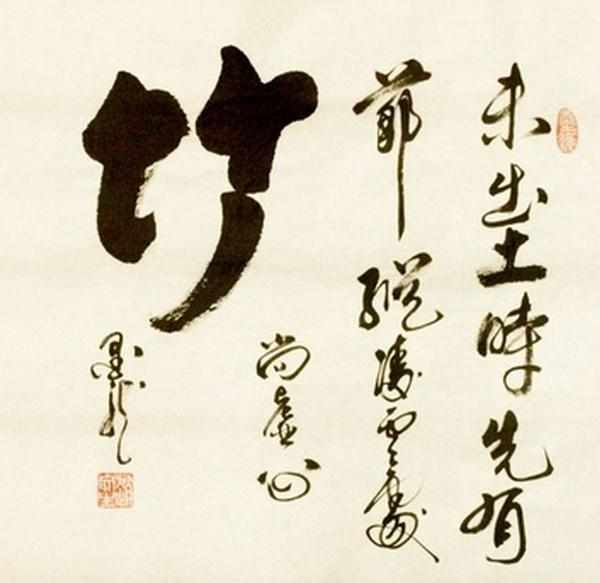 未出土時先有
節縱凌雲處
尚虛心
竹